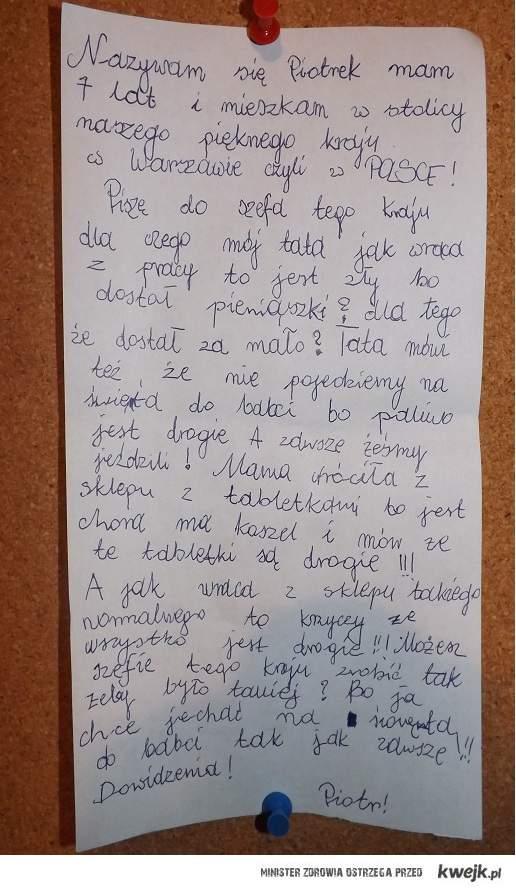 Nazywam się Piotrek mam
7 lat i mieszkam w stolicy
naszego pięknego kraju
w Warszawie czyli w POLSCE!
Piszę do szefa tego kraju
dla czego mój tata jak wraca
z pracy to jest zły bo
dostał pieniąszki? dla tego
że dostał za mało? Tata mówi
też że nie pojedziemy na
święta do babci bo paliwo
jest drogie A zawsze żeśmy
jeździli! Mama wróciła z
sklepu z tabletkami bo jest
chora ma kaszel i mów że
te tabletki są drogie !!!
A jak wraca z sklepu takiego
normalnego to krzyczy że
wszystko jest drogie!!! Możesz
szefie tego kraju zrobić tak
żeby było taniej? Bo ja
chce jechać na święta
do babci tak jak zawsze!!!
Dowidzenia!
Piotr!
MINISTER ZDROWIA OSTRZEGA PRZED kwejk.pl